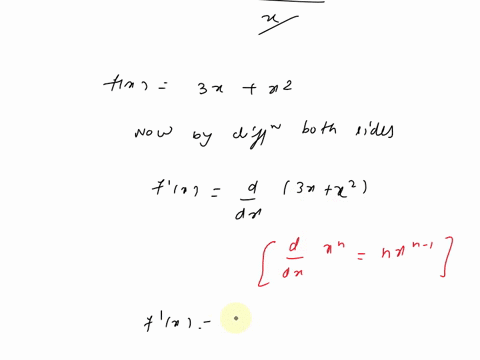 x
f(x) = 3x + x2
Now by diffn both sides
f'(x) = d/dx (3x+x2)
[d/dx xn = nxn-1]
f'(x) =